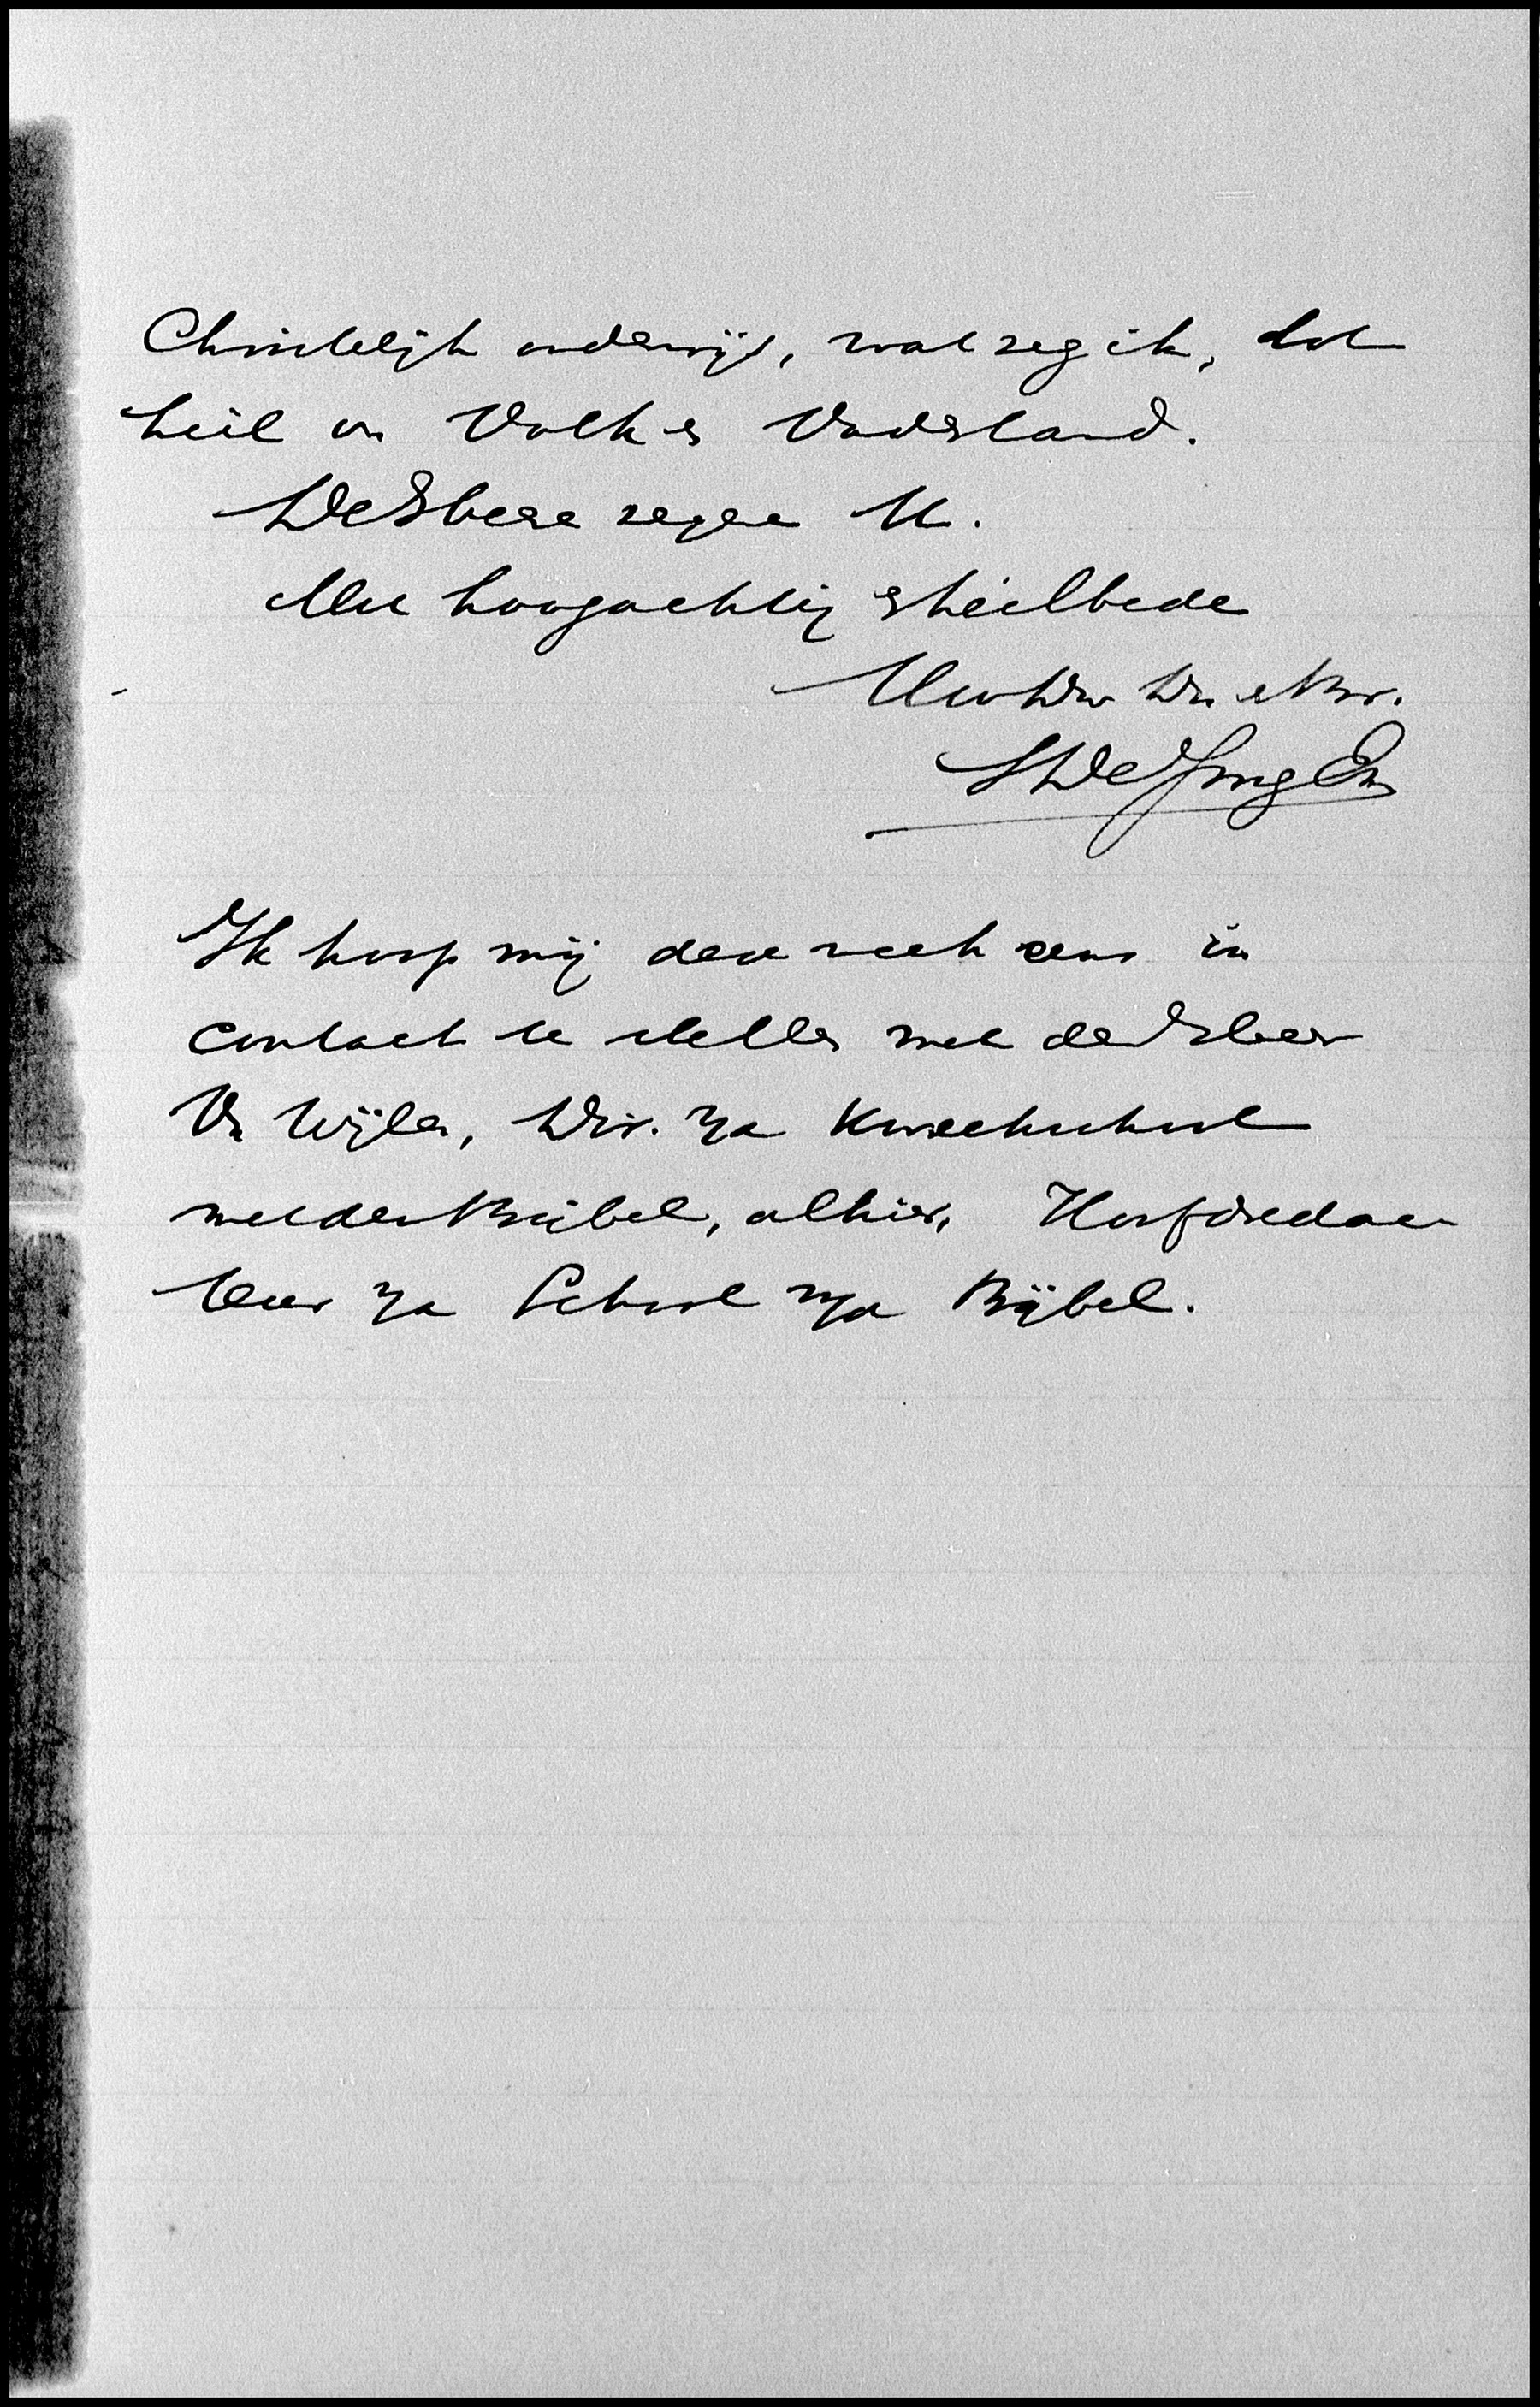 Christelijk onderwijs, wat zeg ik, tot
heil vn Volk en Vaderland.
De Heere zegene U.
Met hoogachting en heilbede
Uw Dw Dr. en Br.
S de Jong En
Ik hoop mij deze week eens in
contact te stellen met den Heer
V. Wijlen, Dir. v/d Kweekschool
met den Bijbel, alhier, Hoofdredac
teur v/d School m/d Bijbel.